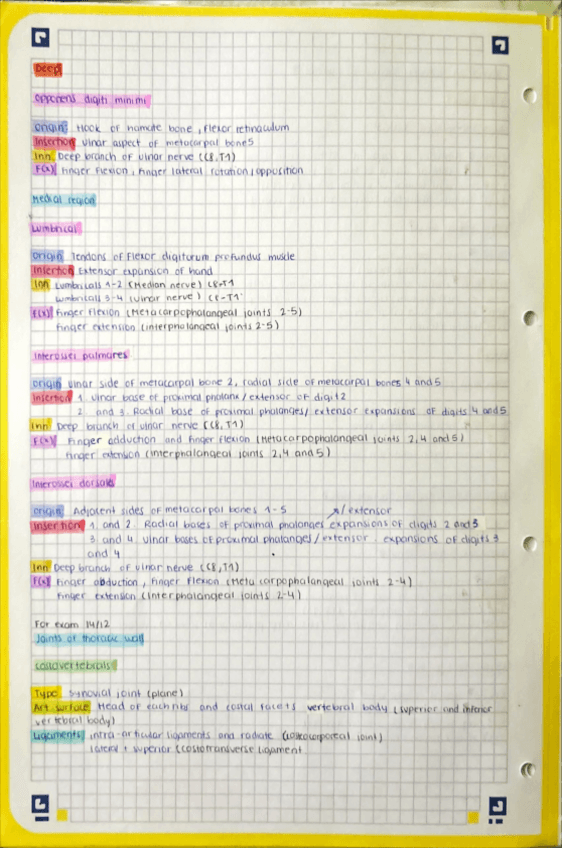 Deep
opponens digiti minimi
origin: Hook of hamate bone, flexor retinaculum
Insertion: ulnar aspect of metacarpal bone 5
Inn: Deep branch of ulnar nerve (C8, T1)
F(x): Finger flexion, finger lateral rotation, opposition
Medial region
Lumbrical
origin: Tendons of flexor digitorum profundus muscle
Insertion: Extensor expansion of hand
Inn: Lumbricals 1-2 (Median nerve) C8-T1
Lumbricals 3-4 (ulnar nerve) C8-T1
F(x): Finger flexion (Metacarpophalangeal joints 2-5)
finger extension (interphalangeal joints 2-5)
Interossei palmares
origin: ulnar side of metacarpal bone 2, radial side of metacarpal bones 4 and 5
Insertion: 1. ulnar base of proximal phalanx / extensor of digit 2
2. and 3. Radial base of proximal phalanges / extensor expansions of digits 4 and 5
Inn: Deep branch of ulnar nerve (C8, T1)
F(x): Finger adduction and finger flexion (Metacarpophalangeal joints 2, 4 and 5)
finger extension (interphalangeal joints 2, 4 and 5)
Interossei dorsales
origin: Adjacent sides of metacarpal bones 1-5 / extensor
Insertion: 1. and 2. Radial bases of proximal phalanges expansions of digits 2 and 3
3. and 4. ulnar bases of proximal phalanges / extensor expansions of digits 3
and 4
Inn: Deep branch of ulnar nerve (C8, T1)
F(x): Finger abduction, finger flexion (Metacarpophalangeal joints 2-4)
Finger extension (Interphalangeal joints 2-4)
For exam 14/12
Joints of thoracic wall
costovertebrals
Type: synovial joint (plane)
Art. surface: Head of each ribs and costal facets vertebral body (superior and inferior
vertebral body)
Ligaments: intra-articular ligaments and radiate (costocorporeal joint)
lateral + superior (costotransverse ligament